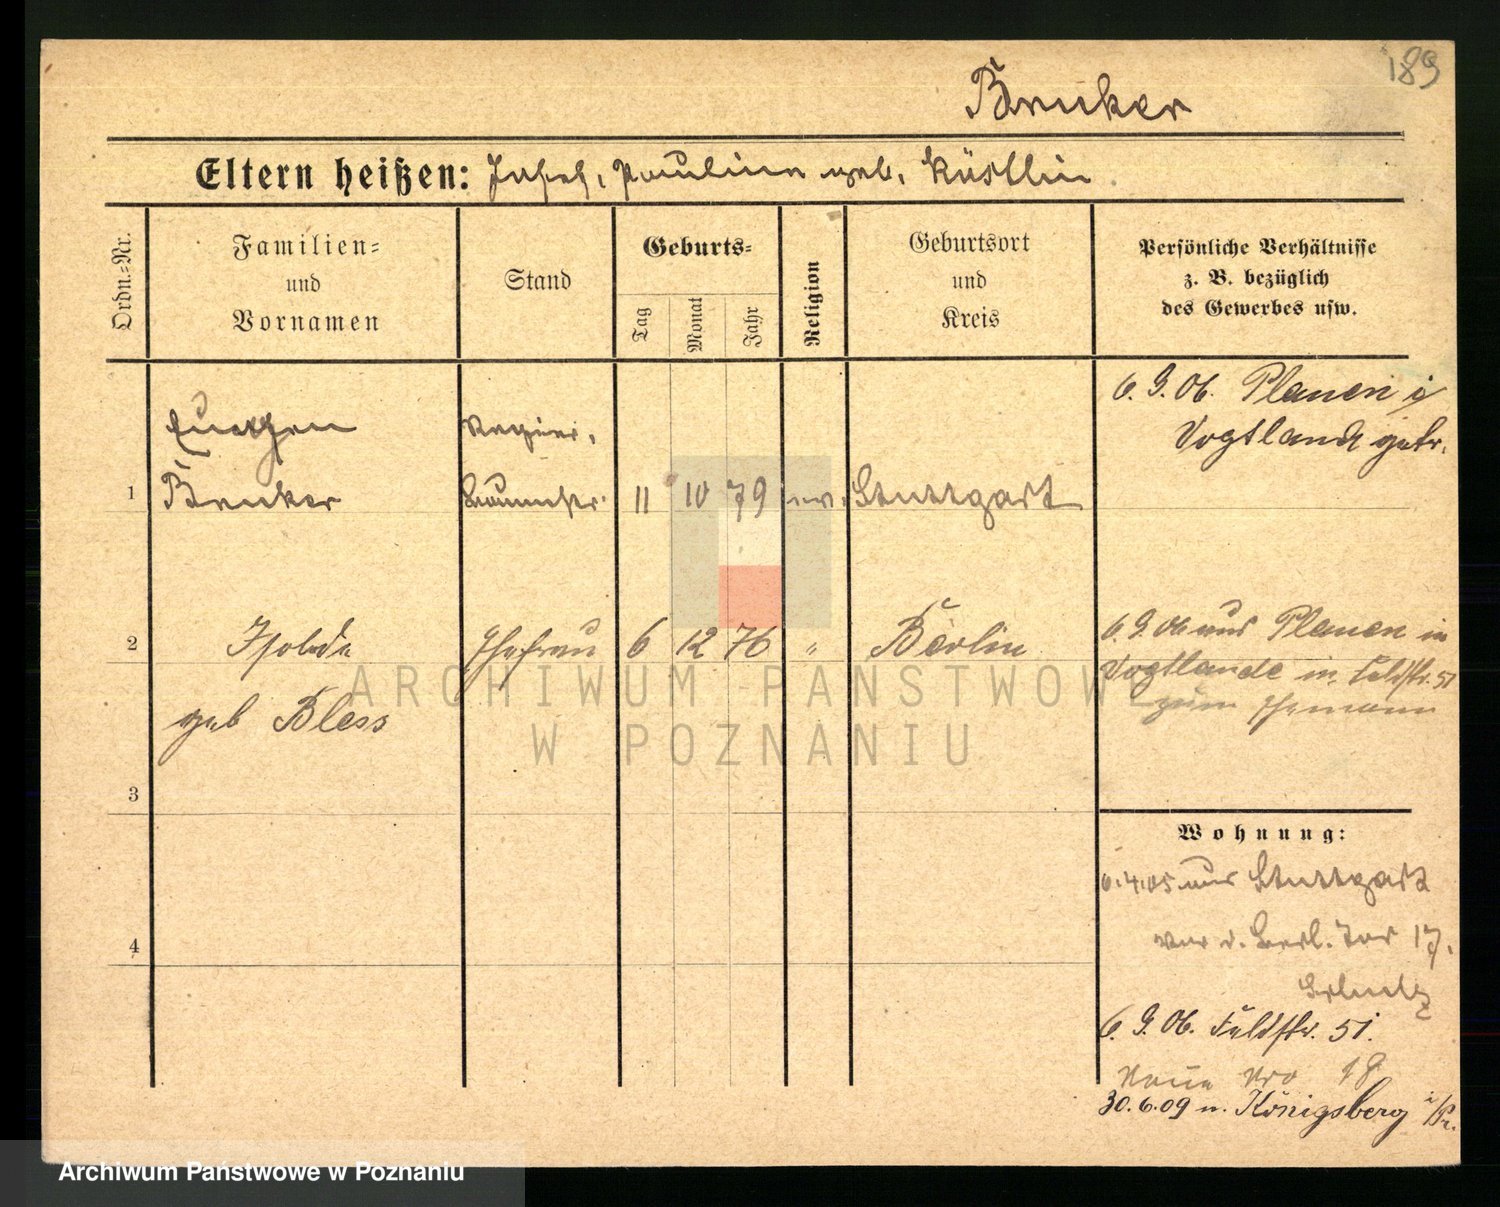 189
Bruker
Eltern heißen: Josef, Pauline geb. Küstlin
Ordn.-Nr.
Familien-
und
Vornamen
Stand
Geburts-
Tag
Monat
Jahr
Religion
Geburtsort
und
Kreis
Persönliche Verhältnisse
z. B. bezüglich
des Gewerbes usw.
6.9.06. Plauen i/
Vogtland getr.
Eugen Regier.
1 Bruker Baumstr. 11 10 79 ev. Stuttgart
2 Isolde Ehefrau 6 12 76 " Berlin
geb Bless
6.9.06 aus Plauen im
Vogtlande in Feldstr. 51
zum Ehemann
3
4
Wohnung:
6.4.05 aus Stuttgart
vor d. Berl. Tor 17.
6.9.06. Feldstr. 51.
Neue Nro 18
30.6.09 n. Königsberg i/Pr.
ARCHIWUM PAŃSTWOWE
W POZNANIU
Archiwum Państwowe w Poznaniu